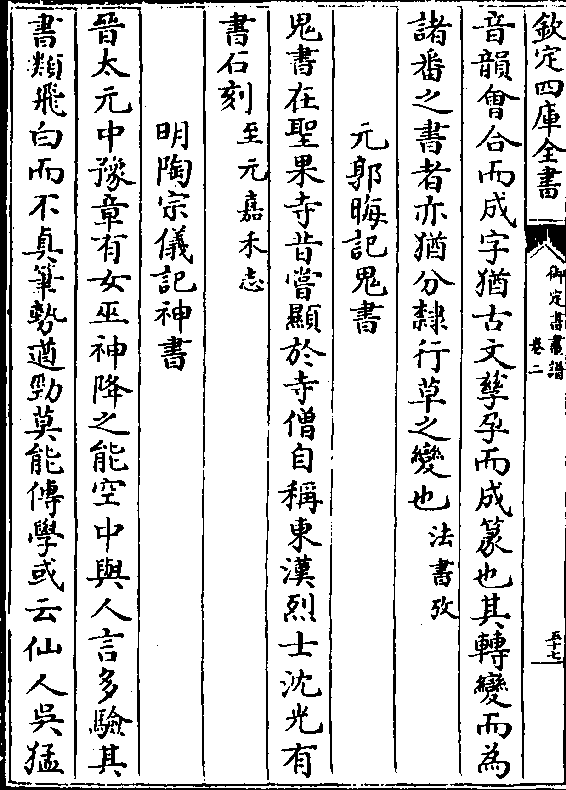 欽定四庫全書
御定書畫譜
卷二
五十七
音韻會合而成字猶古文孳孕而成篆也其轉變而為
諸番之書者亦猶分隸行草之變也法書攷
元郭晦記鬼書
鬼書在聖果寺昔嘗顯於寺僧自稱東漢烈士沈光有
書石刻至元嘉禾志
明陶宗儀記神書
晉太元中豫章有女巫神降之能空中與人言多驗其
書類飛白而不真筆勢遒勁莫能傳學或云仙人吳猛